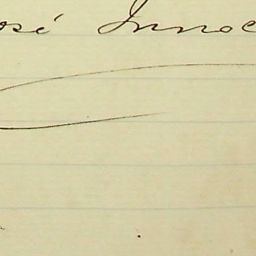 osé Innoc